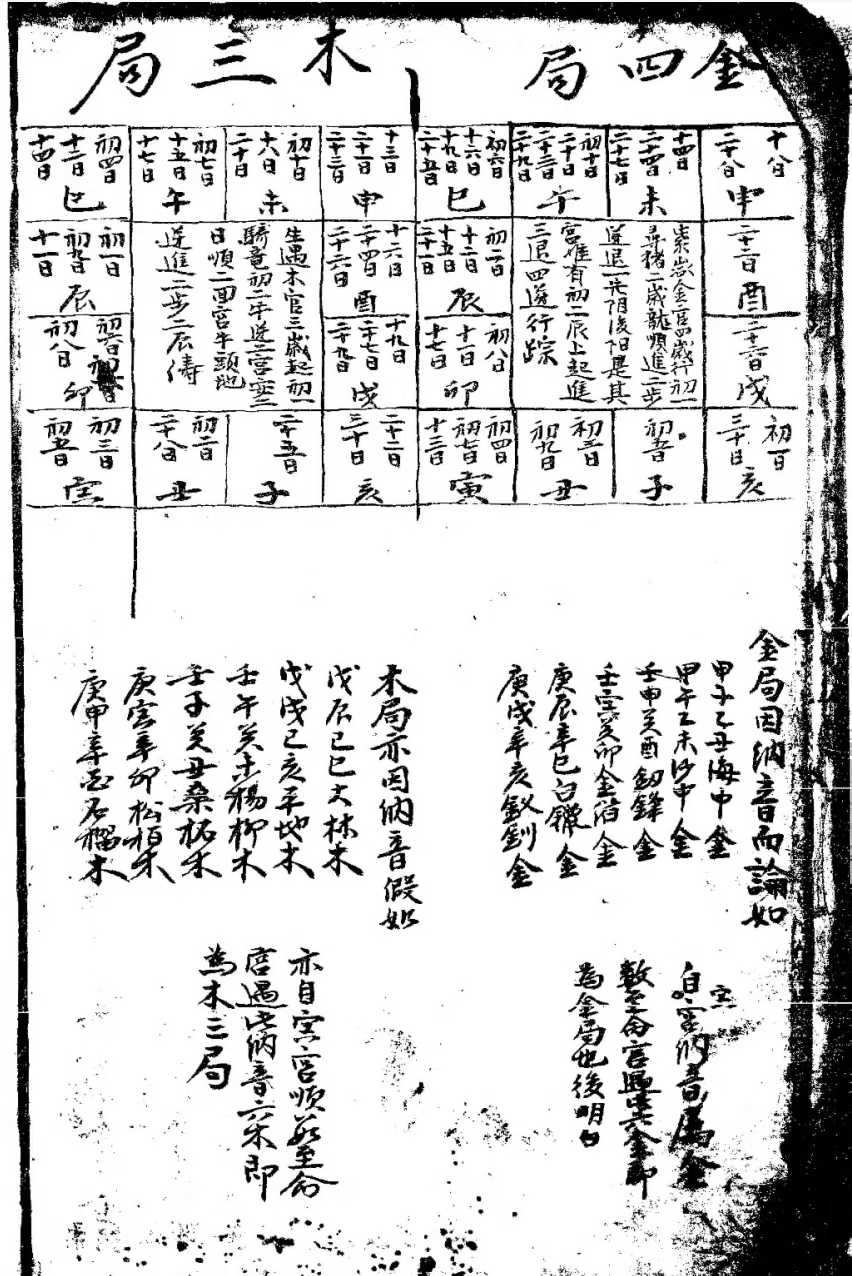 金四局
十八日
二十八日
申
十四日
二十四日
二十七日
未
初十日
二十日
二十三日
二十九日
午
初六日
十六日
十九日
二十五日
巳
二十二日
酉
二十六日
戌
初一日
三十日
亥
初五日
子
初三日
初九日
丑
初四日
初七日
十三日
寅
初八日
十一日
十七日
卯
初二日
十二日
十五日
二十一日
辰
金宮四歲行初一
尋猪二歲龍順進二步
逆退一先阴後阳是其
宮惟有初二辰上起進
三退四逆行踪
木三局
十三日
二十一日
二十三日
申
初十日
十八日
二十日
未
初七日
十五日
十七日
午
初四日
十二日
十四日
巳
十六日
二十四日
二十六日
酉
十九日
二十七日
二十九日
戌
二十二日
三十日
亥
二十五日
子
初二日
二十八日
丑
初三日
初五日
寅
初六日
初八日
卯
初一日
初九日
十一日
辰
生遇木宮三歲起初一
騎竜初二牛逆二宮安三
日順二回宮牛頭地
逆進二步二辰儔
金局因納音而論如
甲子乙丑海中金
甲午乙未沙中金
壬申癸酉釼鋒金
壬寅癸卯金箔金
庚辰辛巳白鑞金
庚戌辛亥釵釧金
自寅納音属金
數至命宮遇此六金即
為金局也後明白
木局亦因納音假如
戊辰己巳大林木
戊戌己亥平地木
壬午癸未楊柳木
壬子癸丑桑柘木
庚寅辛卯松柏木
庚申辛酉石榴木
亦自寅宮順数至命
宮遇此納音六木即
為木三局